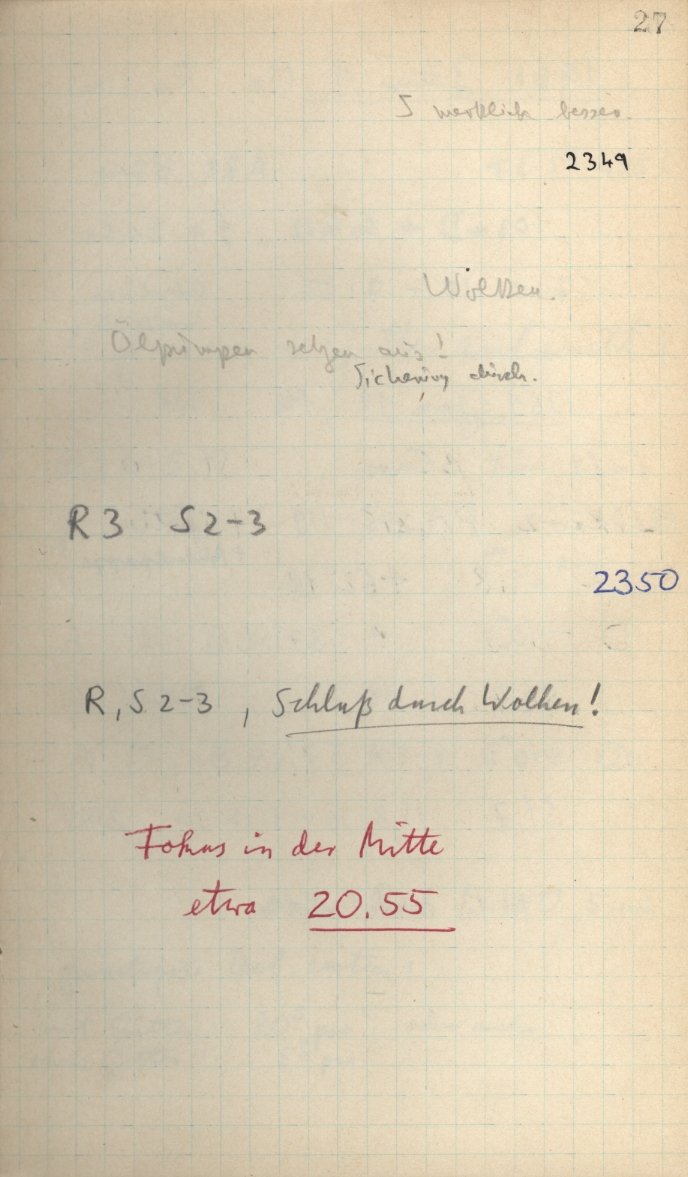 27
S merklich besser.
2349
Wolken.
Ölpumpen setzen aus!
Sicherung durch.
R 3 S 2-3
2350
R, S 2-3, Schluß durch Wolken!
Fokus in der Mitte
etwa 20.55